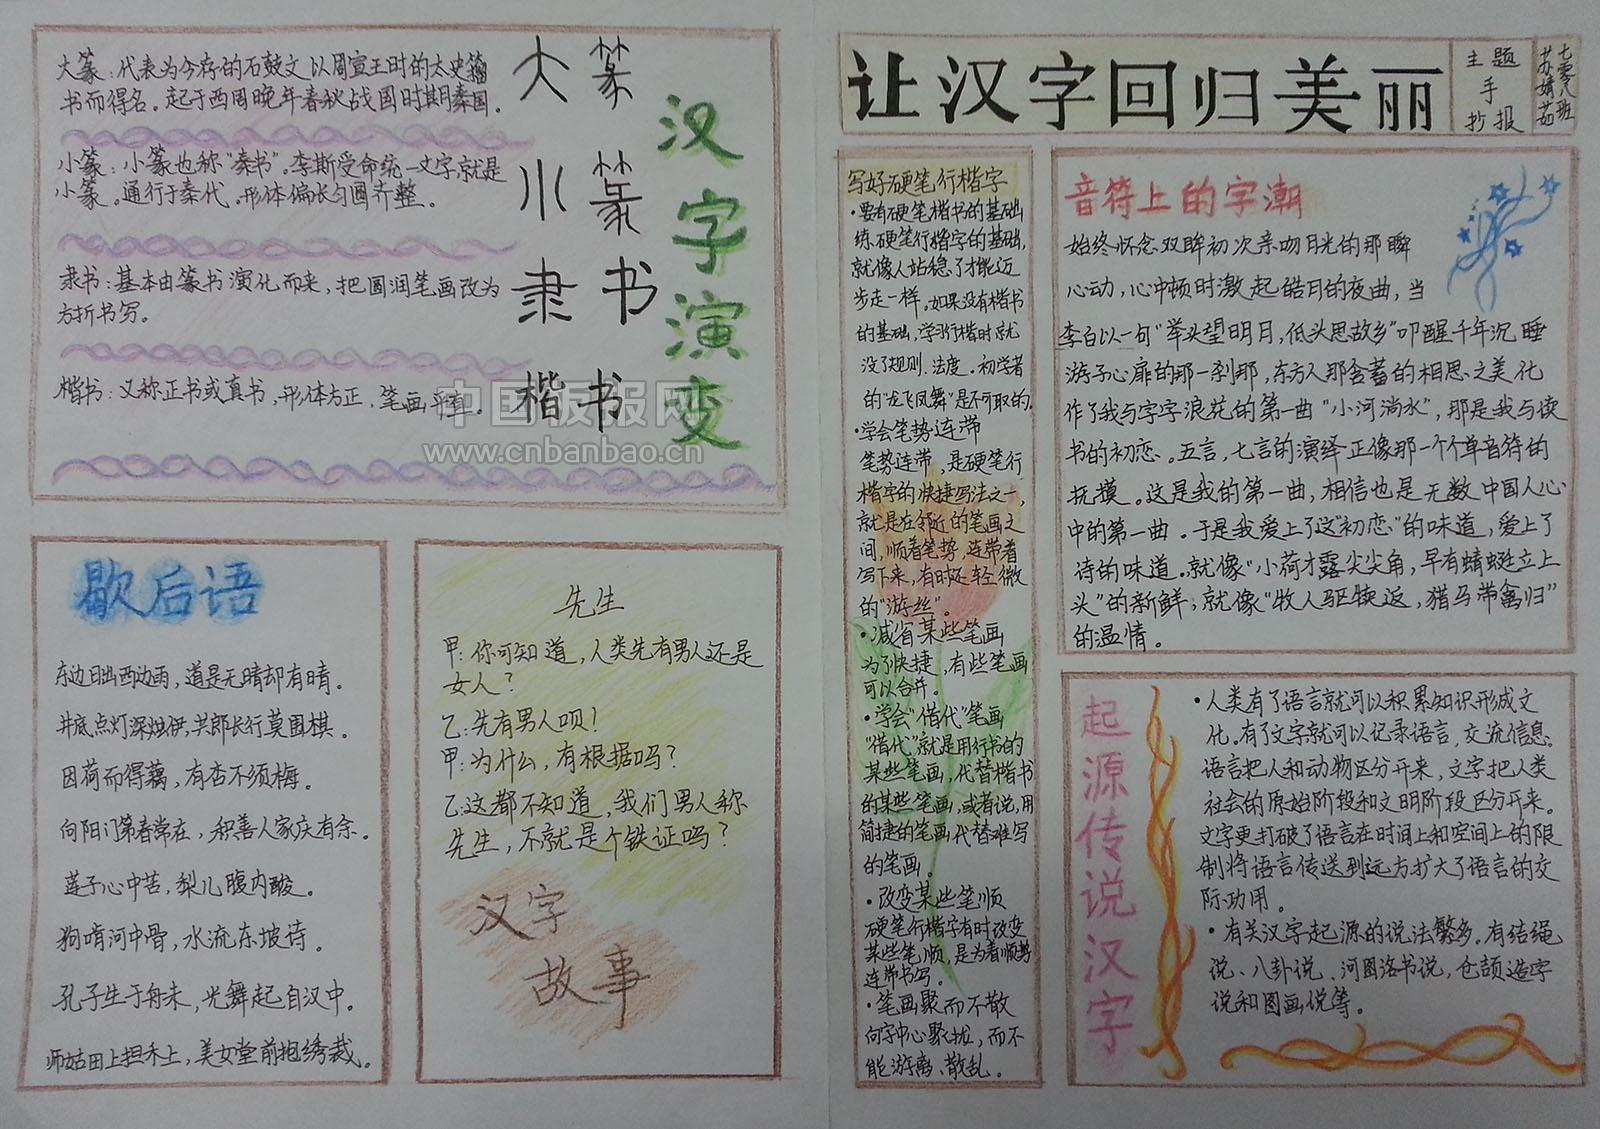 大篆：代表为今存的石鼓文以周宣王时的太史籀
书而得名。起于西周晚年春秋战国时期秦国。
小篆：小篆也称“秦书”。李斯受命统一文字，就是
小篆。通行于秦代。形体偏长匀圆齐整。
隶书：基本由篆书演化而来，把圆润笔画改为
方折书写。
楷书：又称正书或真书，形体方正，笔画平直。
大篆
小篆
隶书
楷书
汉字演变
中国板报网
www.cnbanbao.cn
歇后语
东边日出西边雨，道是无晴却有晴。
井底点灯深烛伊，共郎长行莫围棋。
因荷而得藕，有杏不须梅。
向阳门第春常在，积善人家庆有余。
莲子心中苦，梨儿腹内酸。
狗啃河中骨，水流东坡诗。
孔子生于舟末，光舞起自汉中。
师姑田上担禾上，美女堂前抱绣裁。
先生
甲：你可知道，人类先有男人还是
女人？
乙：先有男人呗！
甲：为什么，有根据吗？
乙：这都不知道，我们男人称
先生，不就是个铁证吗？
汉字
故事
让汉字回归美丽
主题
手
抄报
七零八班
苏婧茹
写好硬笔行楷字
·要有硬笔楷书的基础
练硬笔行楷字的基础，
就像人站稳了才能迈
步走一样。如果没有楷书
的基础，学习行楷时就
没了规则、法度。初学者
的“龙飞凤舞”是不可取的。
·学会笔势连带
笔势连带，是硬笔行
楷字的快捷写法之一，
就是在邻近的笔画之
间，顺着笔势，连带着
写下来，有时还轻微
的“游丝”。
·减省某些笔画
为了快捷，有些笔画
可以合并。
·学会“借代”笔画
“借代”就是用行书的
某些笔画，代替楷书
的某些笔画，或者说，用
简捷的笔画代替难写
的笔画。
·改变某些笔顺
硬笔行楷字有时改变
某些笔顺，是为着顺势
连带书写。
·笔画聚而不散
向字中心聚拢，而不
能游离、散乱。
音符上的字潮
始终怀念双眸初次亲吻月光的那瞬
心动，心中顿时激起皓月的夜曲，当
李白以一句“举头望明月，低头思故乡”叩醒千年沉睡
游子心扉的那一刹那，东方人那含蓄的相思之美化
作了我与字字浪花的第一曲“小河淌水”，那是我与读
书的初恋。五言，七言的演绎正像那一个个单音符的
抚摸。这是我的第一曲，相信也是无数中国人心
中的第一曲。于是我爱上了这“初恋”的味道，爱上了
诗的味道。就像“小荷才露尖尖角，早有蜻蜓立上
头”的新鲜；就像“牧人驱犊返，猎马带禽归”
的温情。
起源传说汉字
·人类有了语言就可以积累知识形成文
化。有了文字就可以记录语言，交流信息。
语言把人和动物区分开来，文字把人类
社会的原始阶段和文明阶段区分开来。
文字更打破了语言在时间上和空间上的限
制将语言传送到远方扩大了语言的交
际功用。
·有关汉字起源的说法繁多。有结绳
说、八卦说、河图洛书说，仓颉造字
说和图画说等。